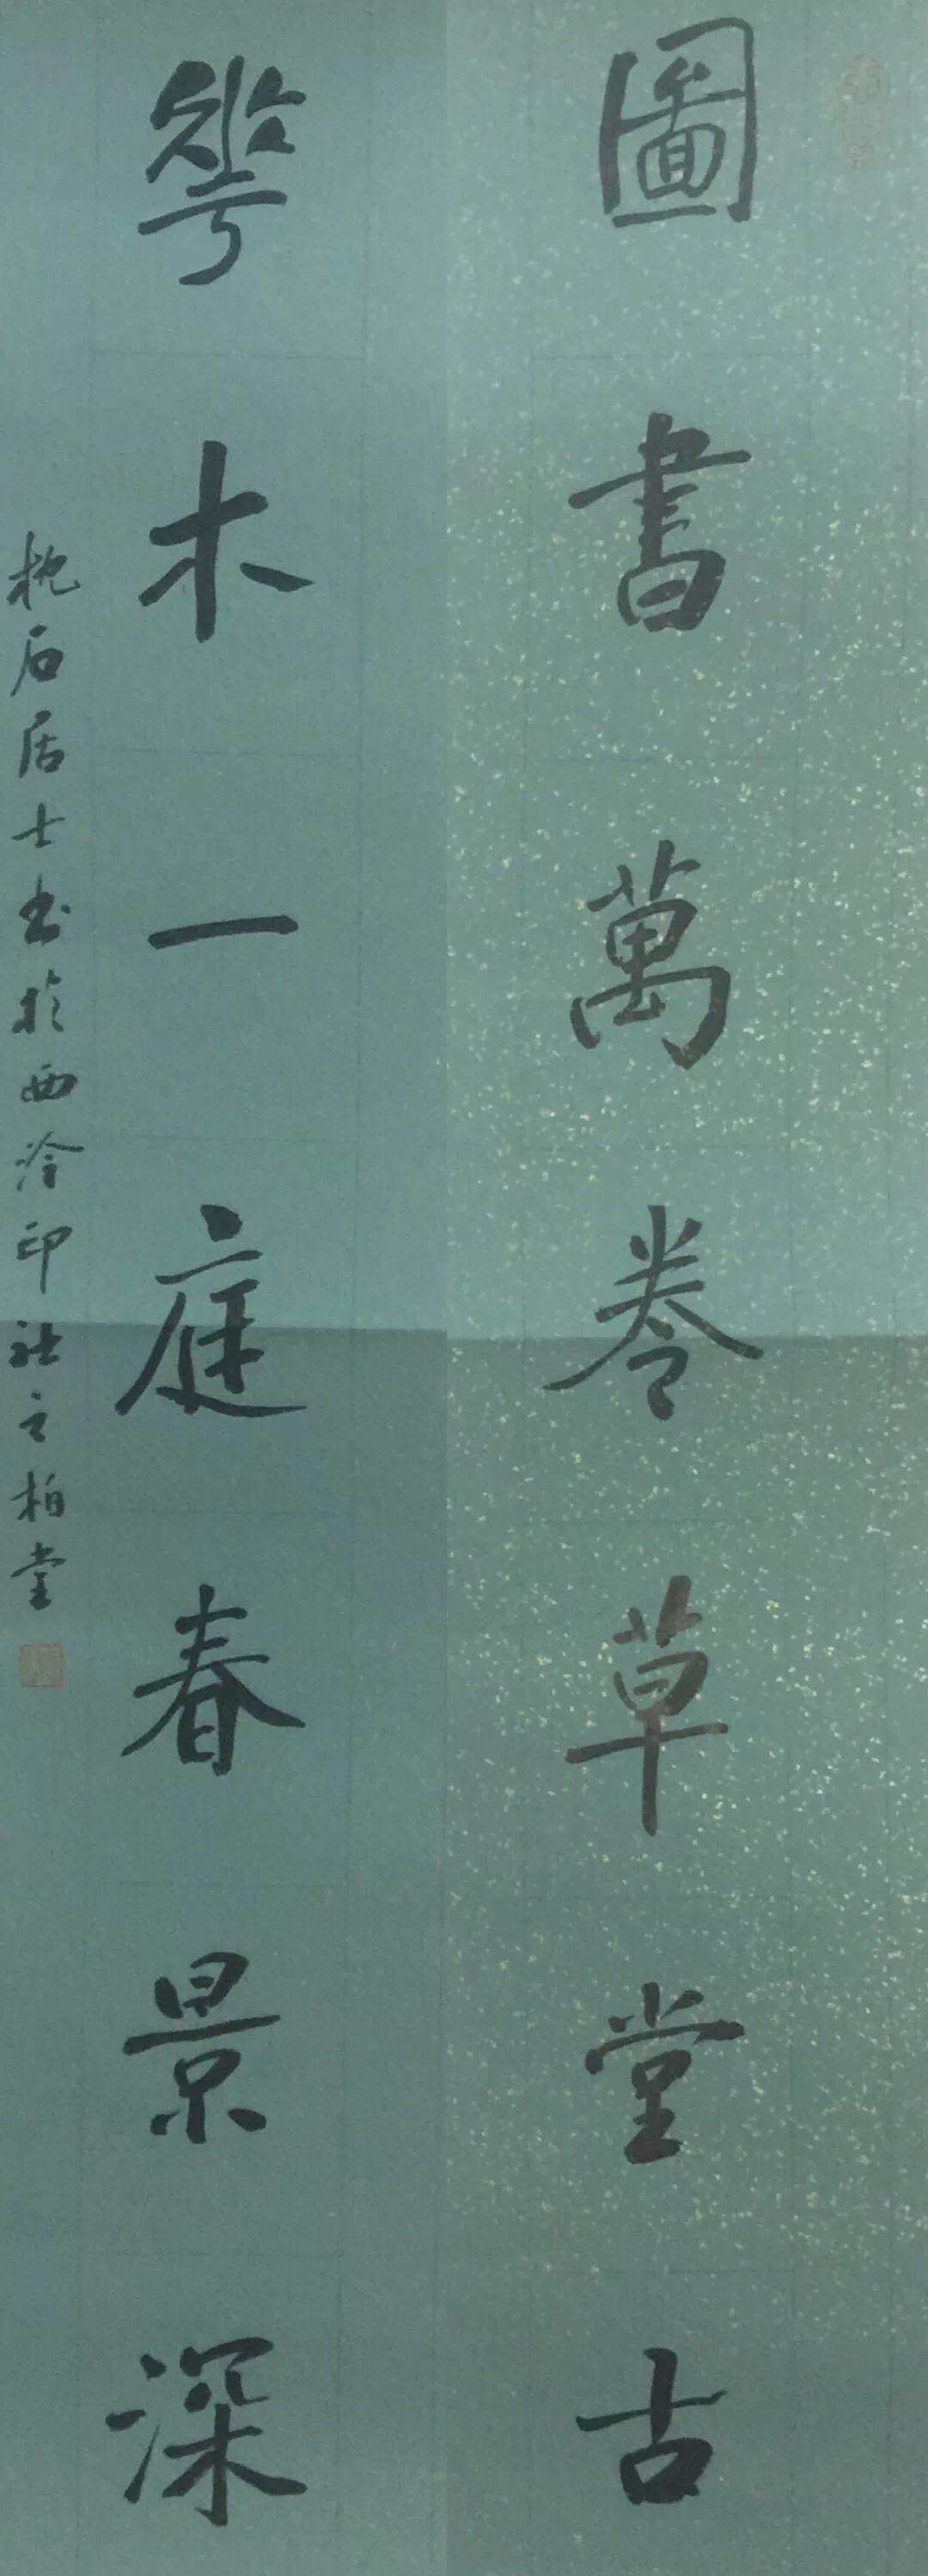 圖書萬卷草堂古
花木一庭春景深
枕石居士書於西泠印社之柏堂